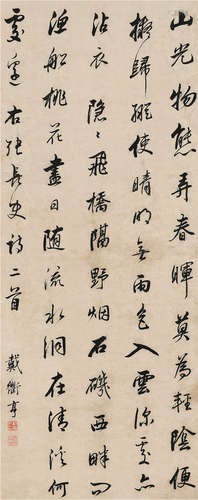 山光物態弄春暉莫為輕陰便
擬歸縱使晴明無雨色入雲深處亦
沾衣隱隱飛橋隔野烟石磯西畔問
漁船桃花盡日隨流水洞在清溪何
處邊右張長史詩二首
戴衢亨